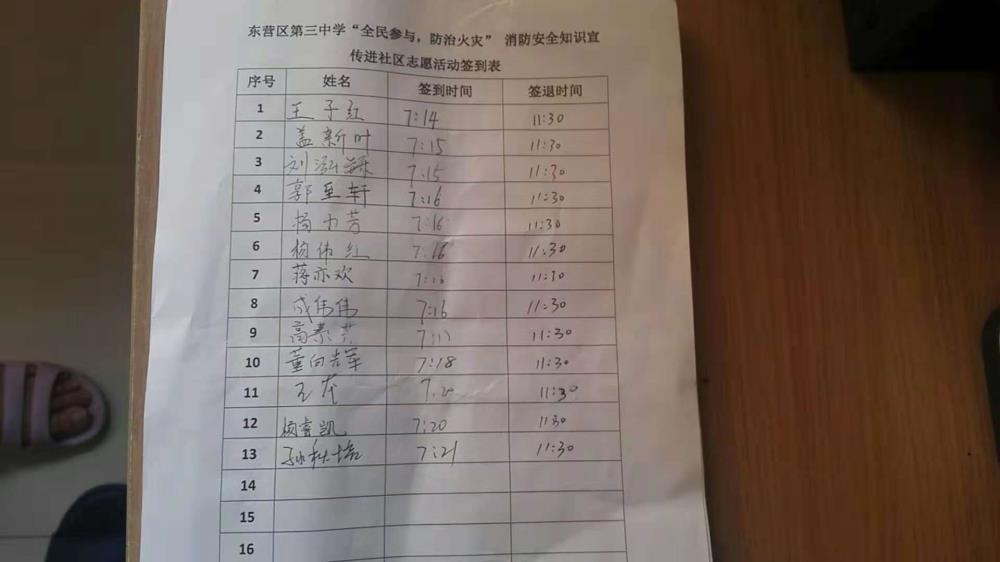 东营区第三中学“全民参与，防治火灾” 消防安全知识宣
传进社区志愿活动签到表
序号 姓名 签到时间 签退时间
1 王子红 7:14 11:30
2 盖新叶 7:15 11:30
3 刘泓 7:15 11:30
4 郭至轩 7:16 11:30
5 杨 芳 7:16 11:30
6 杨伟红 7:16 11:30
7 蒋亦欢 7:16 11:30
8 成伟伟 7:16 11:30
9 高 11:30
10 董向 军 7:18 11:30
11 王 7.20 11:30
12 凯 7:20 1130
13 孙秋 7:21 11:30
14
15
16